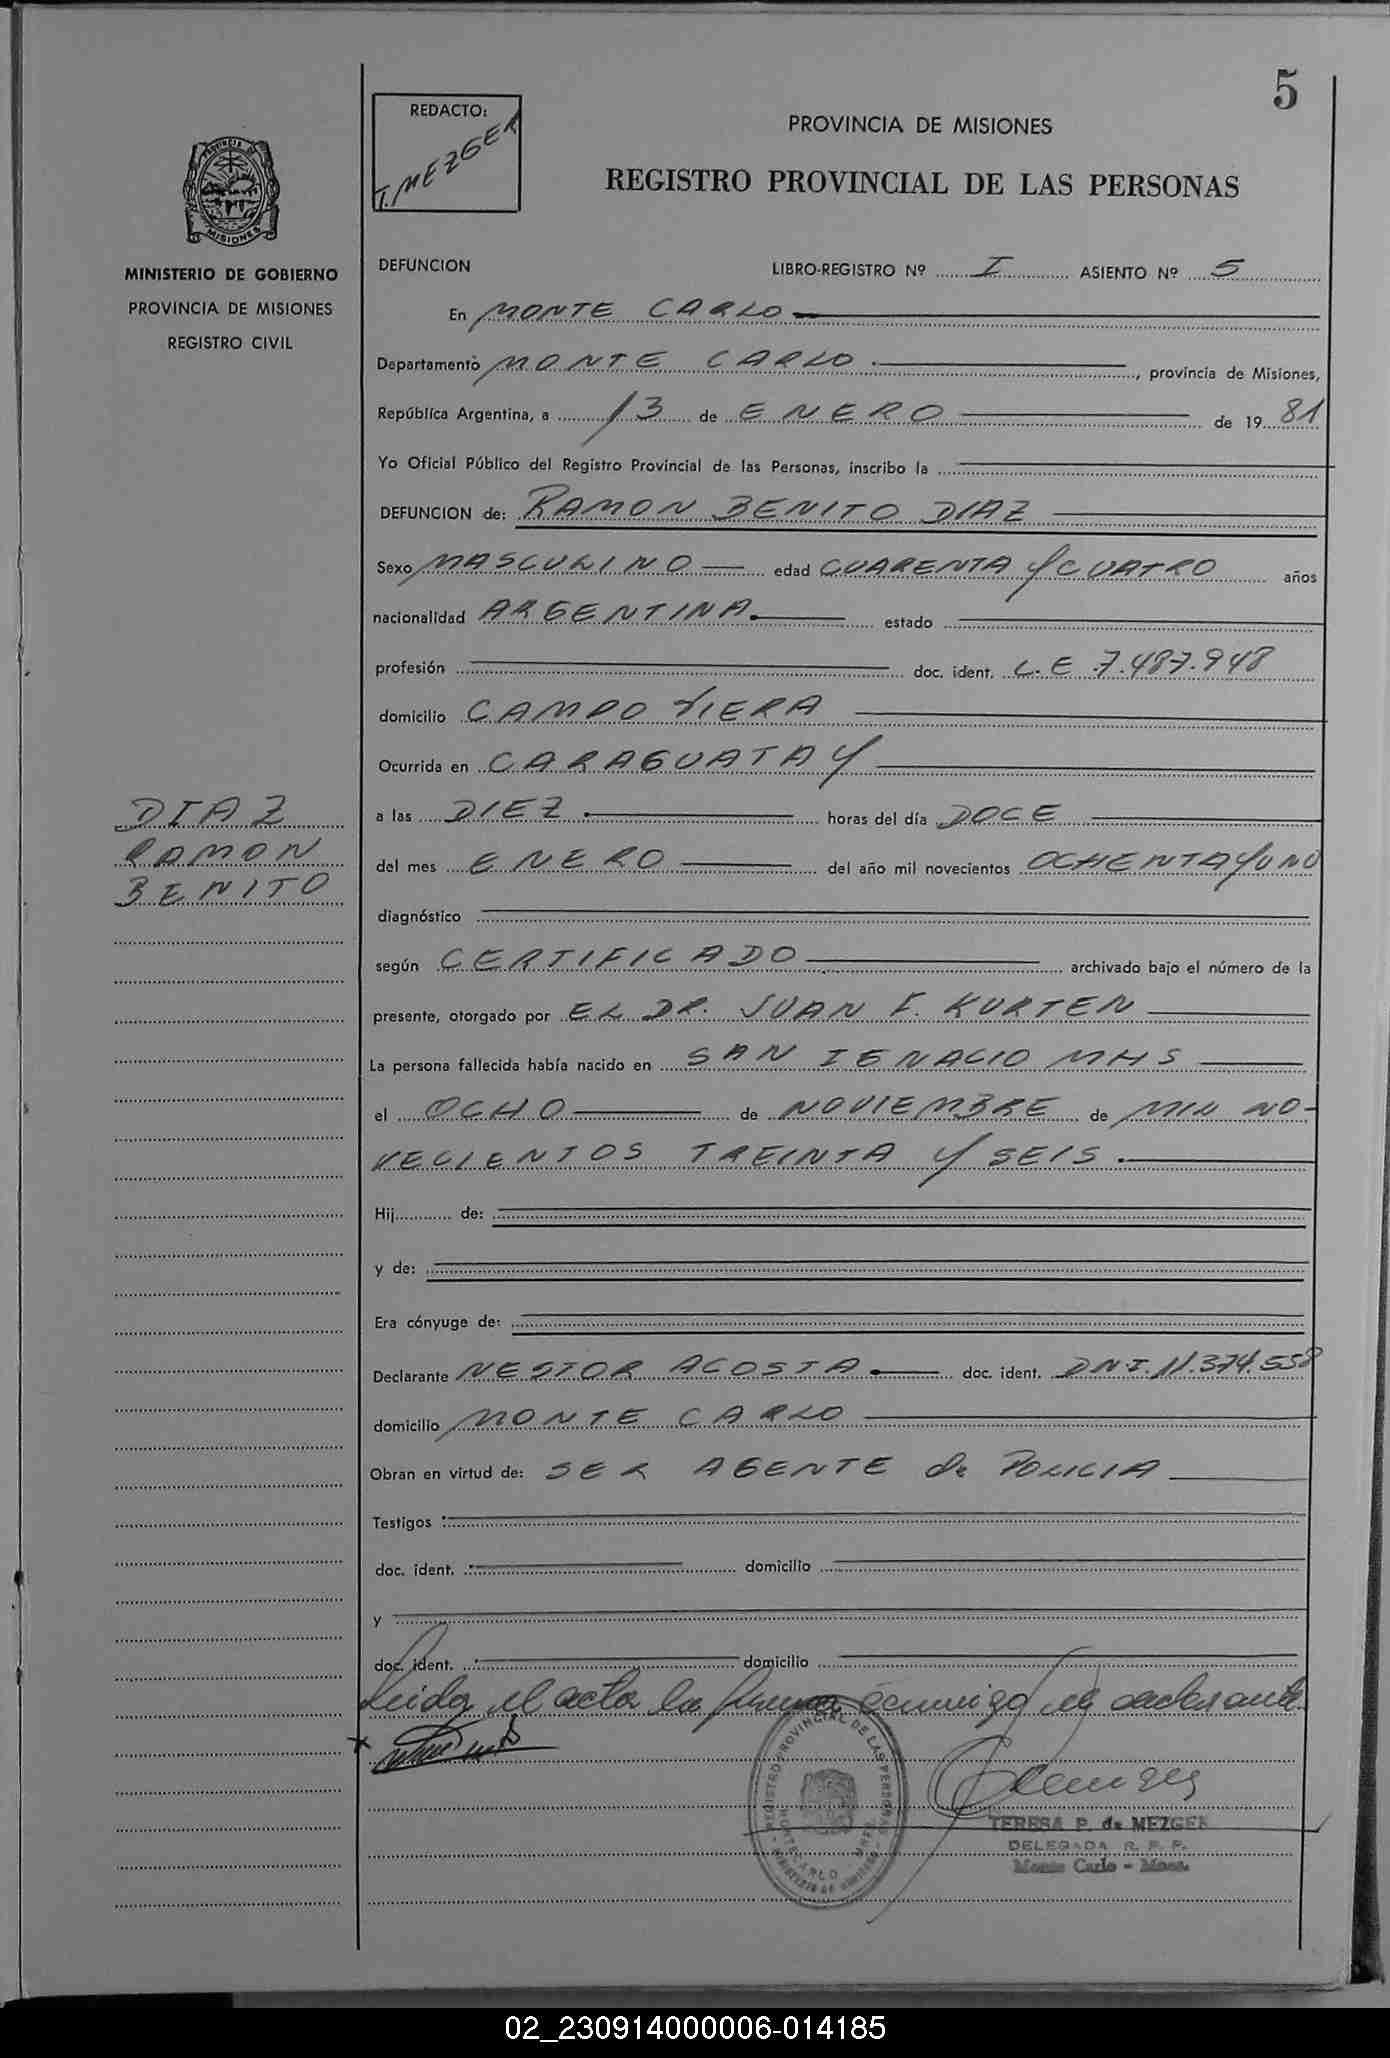 5
REDACTO:
T. MEZGER
PROVINCIA DE MISIONES
REGISTRO PROVINCIAL DE LAS PERSONAS
PROVINCIA DE
MISIONES
MINISTERIO DE GOBIERNO
PROVINCIA DE MISIONES
REGISTRO CIVIL
DEFUNCION LIBRO-REGISTRO Nº I ASIENTO Nº 5
En MONTE CARLO
Departamento MONTE CARLO, provincia de Misiones,
República Argentina, a 13 de ENERO de 19 81
Yo Oficial Público del Registro Provincial de las Personas, inscribo la
DEFUNCION de: RAMON BENITO DIAZ
Sexo MASCULINO edad CUARENTA Y CUATRO años
nacionalidad ARGENTINA. estado
profesión doc. ident. L.E 7.487.948
domicilio CAMPO VIERA
Ocurrida en CARAGUATAY
a las DIEZ. horas del día DOCE
del mes ENERO del año mil novecientos OCHENTA Y UNO
diagnóstico
según CERTIFICADO archivado bajo el número de la
presente, otorgado por EL DR. JUAN F. KURTEN
La persona fallecida había nacido en SAN IGNACIO MNS
el OCHO de NOVIEMBRE de MIL NO-
VECIENTOS TREINTA Y SEIS.
Hij de:
y de:
Era cónyuge de:
Declarante NESTOR ACOSTA. doc. ident. DNI. 11.374.558
domicilio MONTE CARLO
Obran en virtud de: SER AGENTE de POLICIA
Testigos :
doc. ident. : domicilio
y
doc. ident. : domicilio
Leida el acta la firma conmigo el declarante.
DIAZ
RAMON
BENITO
REGISTRO PROVINCIAL DE LAS PERSONAS
MONTECARLO
TERESA P. de MEZGER
DELEGADA R. P. P.
Monte Carlo - Mnes.
02_230914000006-014185